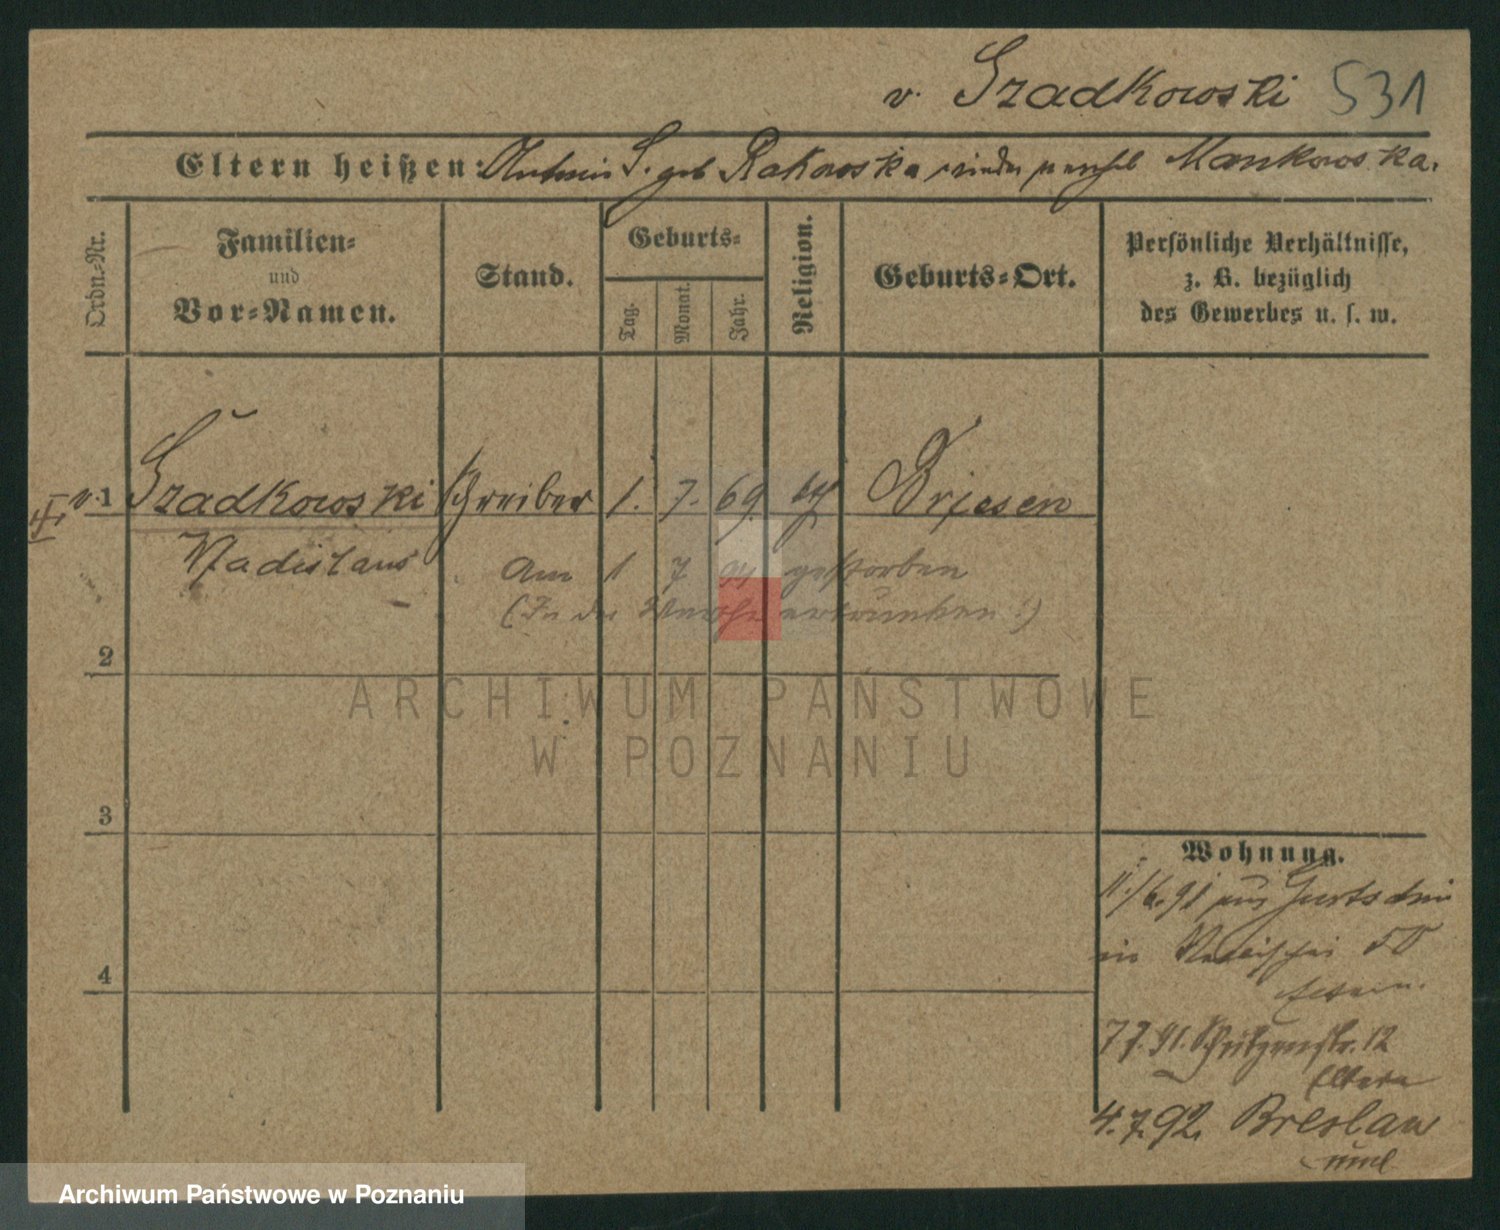 v. Szadkowski 531
Eltern heißen: S. geb Rakowska wieder Mankowska.
Ordn.-Nr.
Familien-
und
Vor-Namen.
Stand.
Geburts-
Tag.
Monat.
Jahr.
Religion.
Geburts-Ort.
Persönliche Verhältnisse,
z. B. bezüglich
des Gewerbes u. s. w.
v. 1 Szadkowski Schreiber 1. 7. 69 Driesen
Wladislaus
Am 1 7 gestorben
(In der Warthe ertrunken!)
2
ARCHIWUM PAŃSTWOWE
W POZNANIU
3
4
Wohnung.
11./6.91 aus
in 50
7 7. 91. Schützenstr. 12
Eltern
4.7.92. Breslau
Archiwum Państwowe w Poznaniu